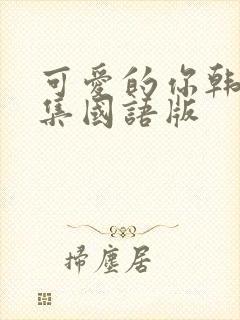 可愛的你韩
集國語版
掃塵居